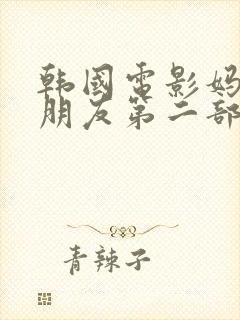 韩国电影妈
朋友第二部
青辣子